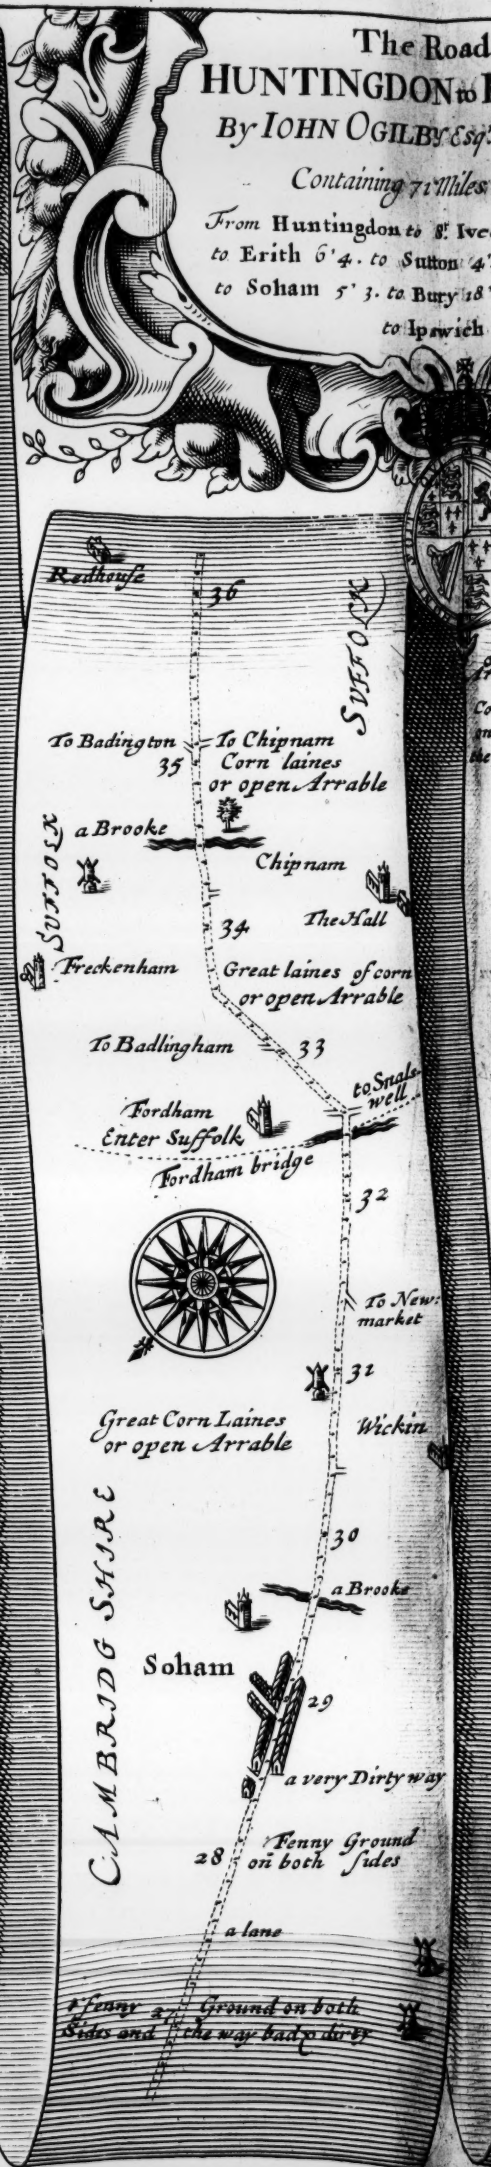 The Road
HUNTINGDON to
By IOHN OGILBY Esqr
Containing 71 Miles
From Huntingdon to St. Ive
to Erith 6'4. to Sutton 4'
to Soham 5'3. to Bury 18'
to Ipswich
Redhouse
36
SUFFOLK
To Badington
To Chipnam
35
Corn laines
or open Arrable
SUFFOLK
a Brooke
Chipnam
34
The Hall
Freckenham
Great laines of corn
or open Arrable
To Badlingham
33
to Snals
well
Fordham
Enter Suffolk
Fordham bridge
32
To New:
market
31
Great Corn Laines
or open Arrable
Wickin
CAMBRIDG SHIRE
30
a Brooke
Soham
29
a very Dirty way
28
Fenny Ground
on both sides
a lane
fenny 27 Ground on both
Sides and the way bad & dirty